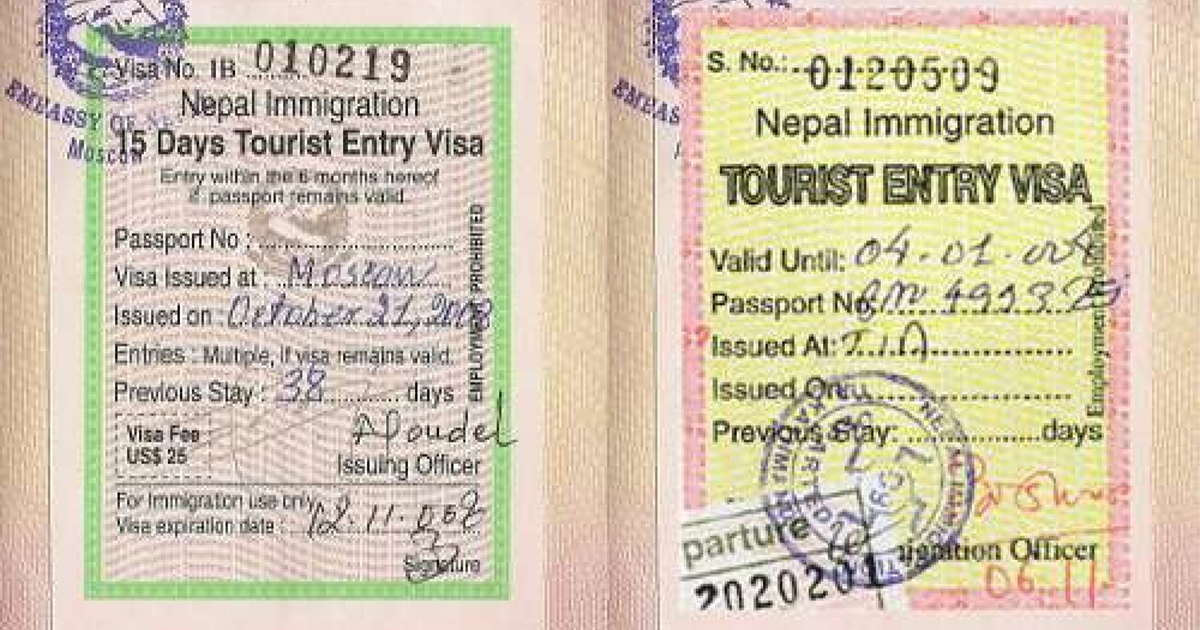 Visa No. IB 010219
EMBASSY OF NE
Moscow
Nepal Immigration
15 Days Tourist Entry Visa
Entry within the 6 months hereof
if passport remains valid.
Passport No :
Visa Issued at : Moscow
Issued on : October 21, 2008
Entries : Multiple, if visa remains valid.
Previous Stay : 38 days
EMPLOYMENT PROHIBITED
Visa Fee
US$ 25
Issuing Officer
For Immigration use only
Visa expiration date :
Signature
EMBAS
S. No.: 0120509
Nepal Immigration
TOURIST ENTRY VISA
Valid Until: 04.01.
Passport No.
Issued At: T.I.A
Issued On:
Previous Stay: days
Employment Prohibited
parture
Officer
2020201
06.11.